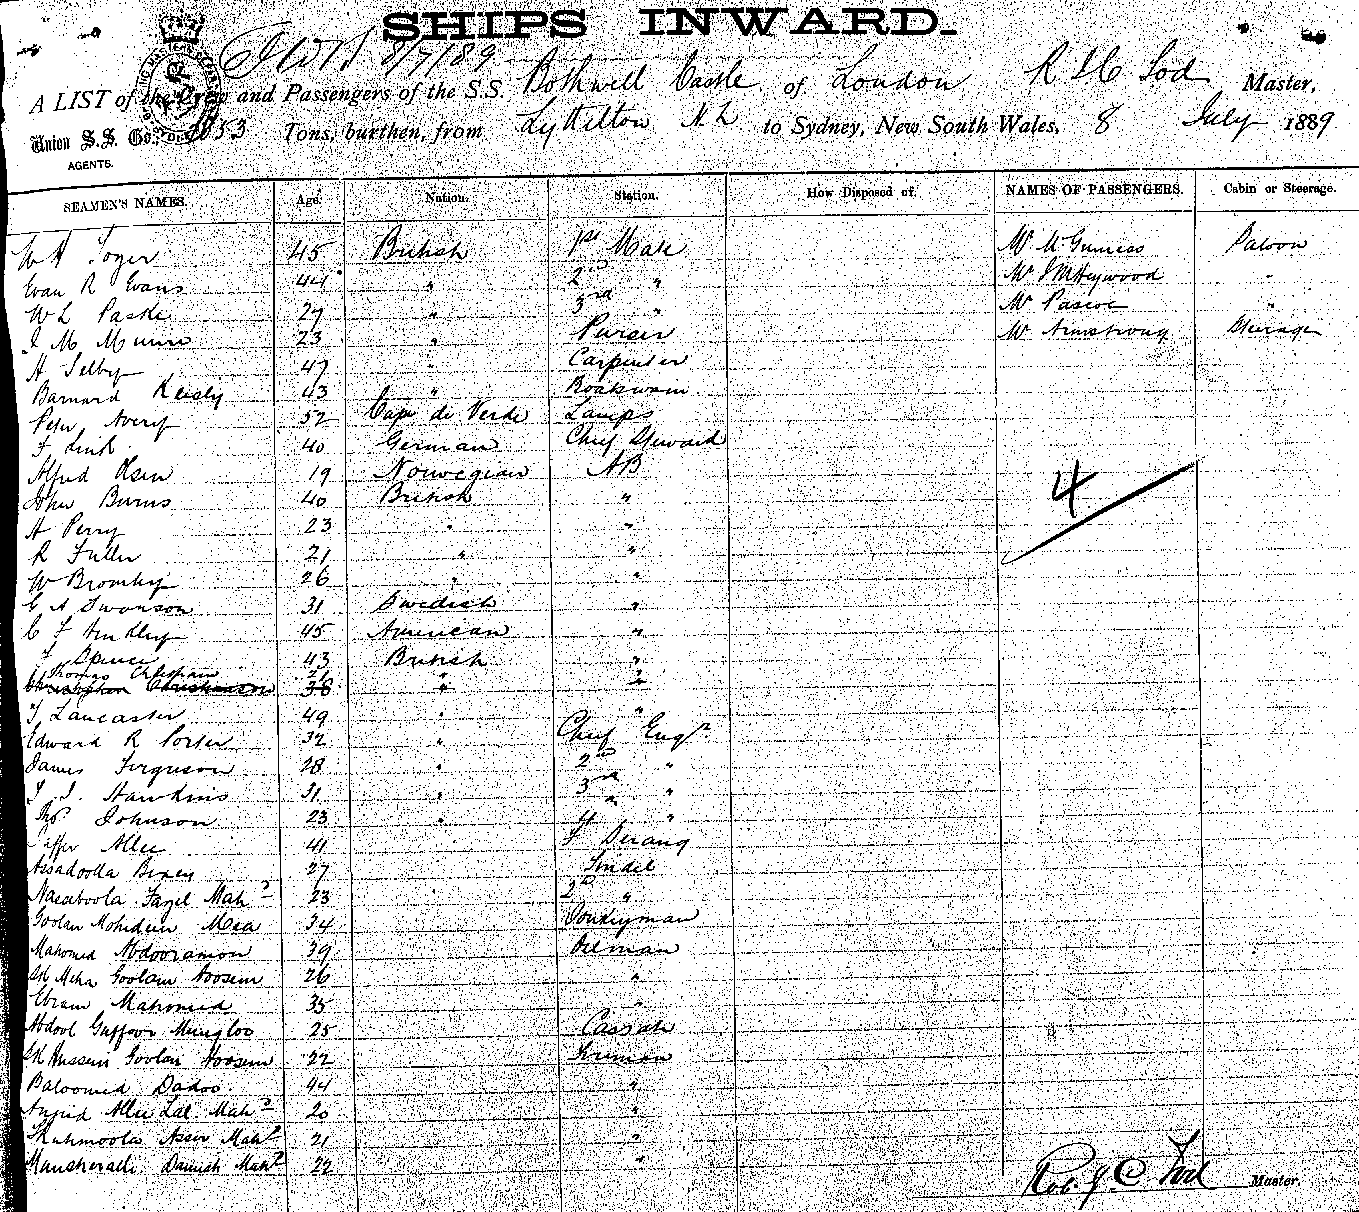 SHIPS INWARD.
8/7/89
A LIST of the Crew and Passengers of the S.S. Bothwell Castle of London R J C Tod Master,
Union S.S. Co., Tons, burthen, from Lyttelton N Z to Sydney, New South Wales, 8 July 1889
AGENTS.
SEAMEN'S NAMES. Age. Nation. Station. How Disposed of. NAMES OF PASSENGERS. Cabin or Steerage.
W H Tozer 45 British 1st Mate Mr McGuiness Saloon
Evan R Evans 44 " 2nd " Mr J M Heywood "
W L Paske 27 " 3rd " Mr Pascoe "
J M Munro 23 " Purser Mr Armstrong Steerage
H Selby 47 " Carpenter
Barnard Keisly 43 " Boatswain
Peter Avery 52 Cape de Verde Lamps
F Link 40 German Chief Steward
Alfred Olsen 19 Norwegian AB
John Burns 40 British "
A Perry 23 " "
R Fuller 21 " "
W Bromley 26 " "
G A Swanson 31 Swedish "
C F 45 American "
T Spence 43 British "
Thomas Christian 21 " "
Christianson 38 "
T Lancaster 49 " "
Edward R Porter 32 " Chief Engr
James Ferguson 28 " 2nd "
J. J. Hawkins 31 " 3rd "
Thos Johnson 23 " 4 "
Jaffer Allee 41 1 Serang
Assadoolla Boxen 27 Tindel
Nasaboola Fazel Mahd 23 2nd "
Goolam Mohideen Meea 34 Donkeyman
Mahomed Abdooramon 39 Oilman
Sk Meha Goolam Hoosein 26 "
Ebram Mahomed 35 "
Abdool Gaffoor Mungloo 25 Cassab
SK Hussein Goolam Hoosein 22 Fireman
Baloomed Dadoo. 44 "
Allee Lal Mahd 20 "
Asser Mahd 21 "
Mausheralli Danish Mahd 22 "
4
Rob. J. C. Tod Master.